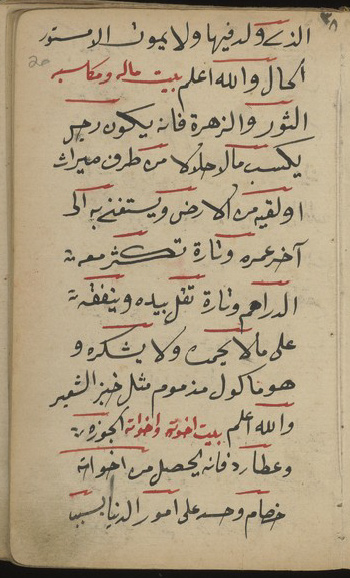 الذي ولد فيها ولا يموت الا مستور
الحال والله اعلم بيت ماله ومكاسبه
الثور والزهرة فانه يكون رجل
يكسب مالا حلالا من طرف ميراث
او لقيه من الارض ويستغني به الى
آخر عمره وتارة تكثر معه
الدراهم وتارة تقل بيده وينفقه
على مالا يحمد ولا يشكره و
هو ماكول مذموم مثل خبز الشعير
والله اعلم بيت اخوته واخواته الجوزه
وعطارد فانه يحصل من اخواته
خصام وحسد على امور الدنيا بسبب